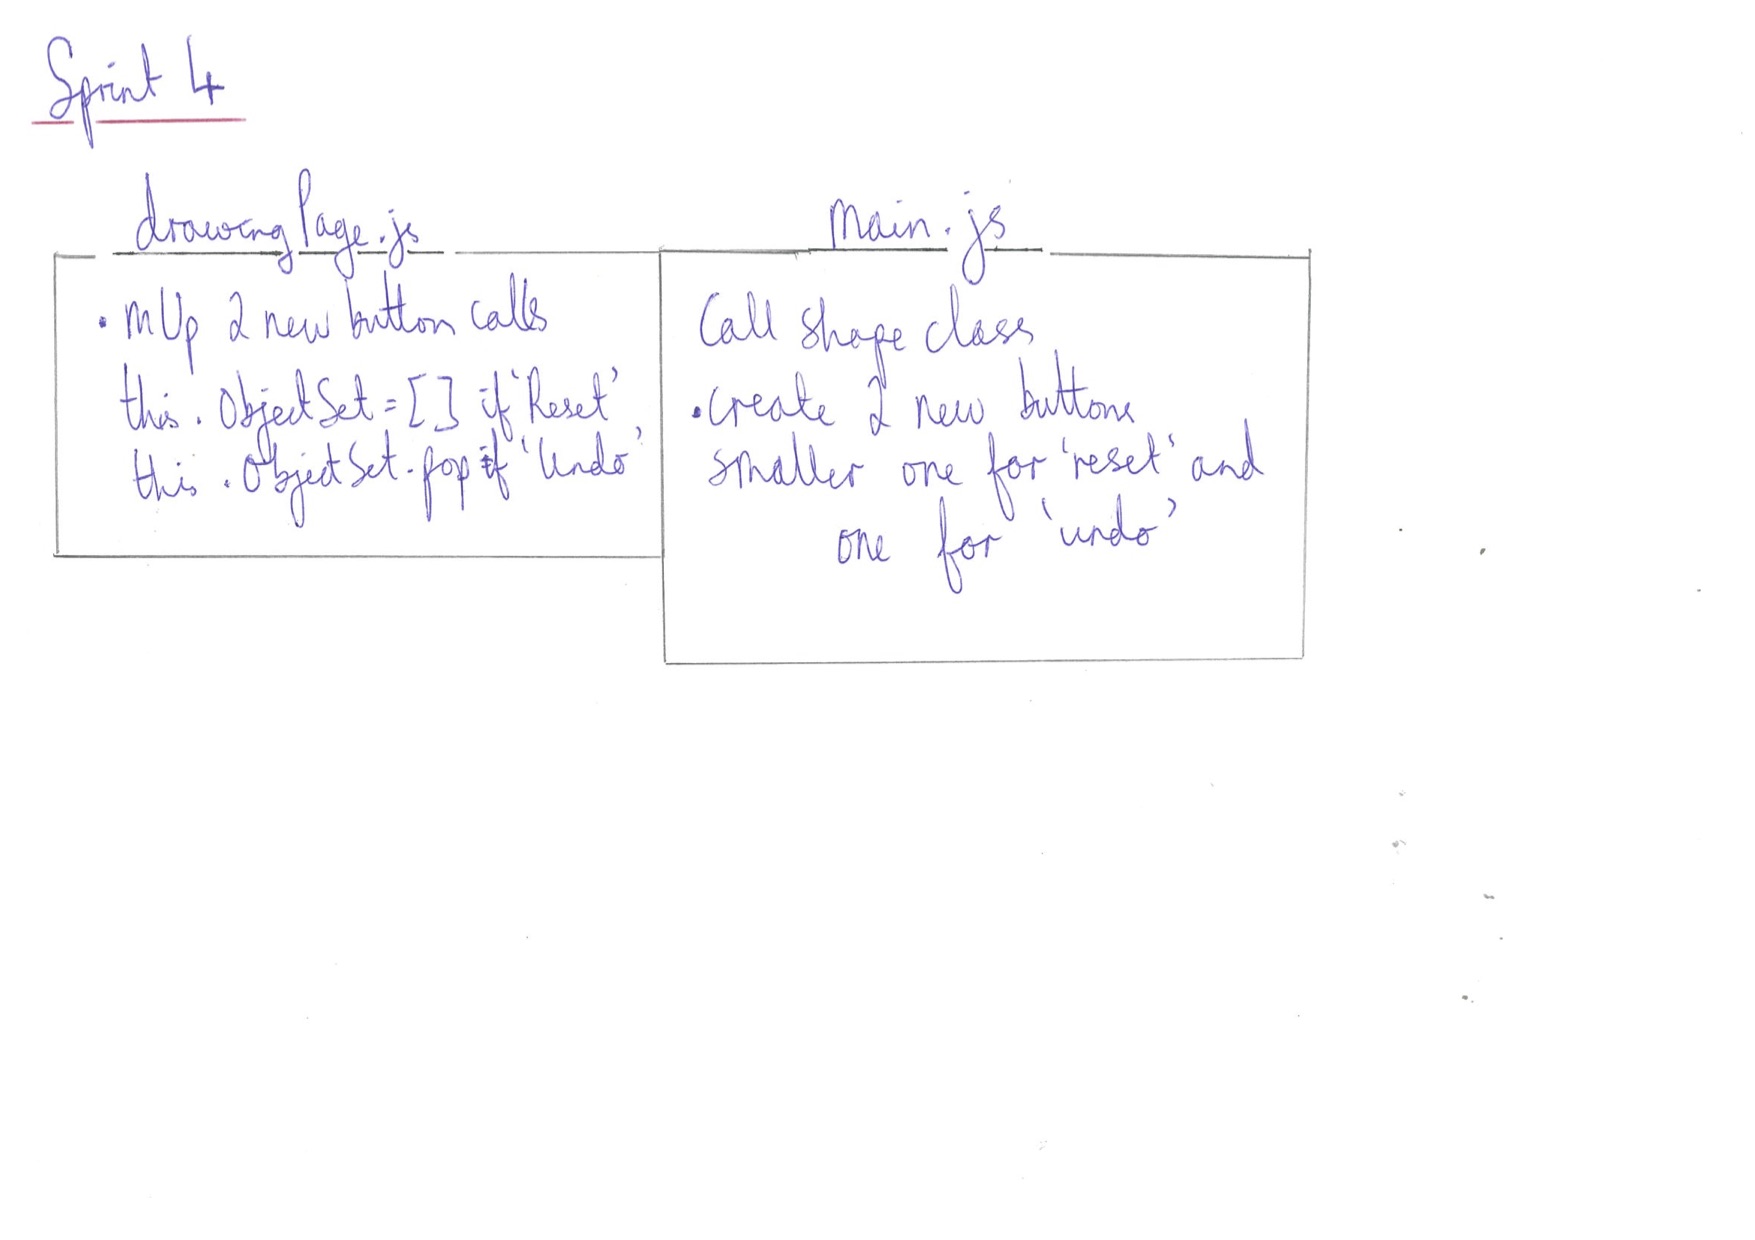 Sprint 4
drawingPage.js
• mUp 2 new button calls
this.ObjectSet = [] if 'Reset'
this.ObjectSet.pop if 'Undo'
Main.js
Call shape class
• create 2 new buttons
smaller one for 'reset' and
one for 'undo'